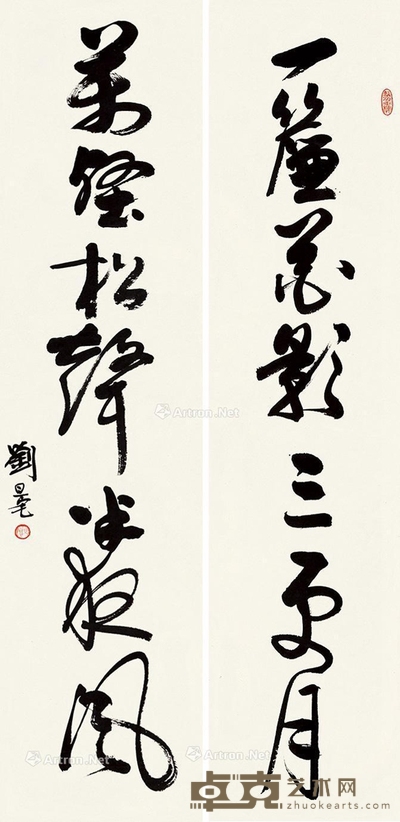 一簾花影三更月
萬壑松聲半夜風
劉旦宅
Artron.Net
Artron.Net
Artron.Net
Artron.Net
卓克艺术网
zhuokearts.com